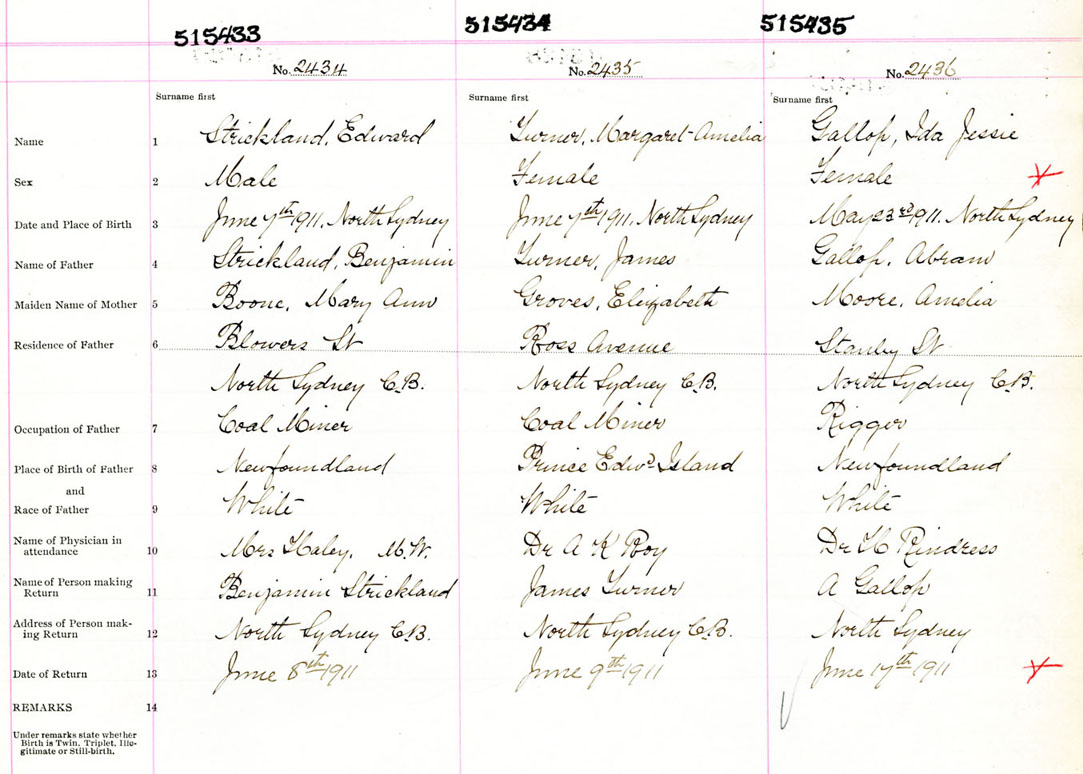 515433 515434 515435
No. 2434 No. 2435 No. 2436
Surname first Surname first Surname first
Name 1 Strickland, Edward Turner, Margaret Amelia Gallop, Ida Jessie
Sex 2 Male Female Female
Date and Place of Birth 3 June 7th 1911, North Sydney June 7th 1911, North Sydney May 23rd 1911. North Sydney
Name of Father 4 Strickland, Benjamin Turner, James Gallop, Abram
Maiden Name of Mother 5 Boone, Mary Ann Groves, Elizabeth Moore, Amelia
Residence of Father 6 Blowers St Ross Avenue Stanley St
North Sydney C.B. North Sydney C.B. North Sydney C.B.
Occupation of Father 7 Coal Miner Coal Miner Rigger
Place of Birth of Father 8 Newfoundland Prince Edwd Island Newfoundland
and
Race of Father 9 White White White
Name of Physician in
attendance 10 Mrs Haley, M.W. Dr A K Roy Dr H Rindress
Name of Person making
Return 11 Benjamin Strickland James Turner A Gallop
Address of Person mak-
ing Return 12 North Sydney C.B. North Sydney C.B. North Sydney
Date of Return 13 June 8th 1911 June 9th 1911 June 17th 1911
REMARKS 14
Under remarks state whether
Birth is Twin, Triplet, Ille-
gitimate or Still-birth.